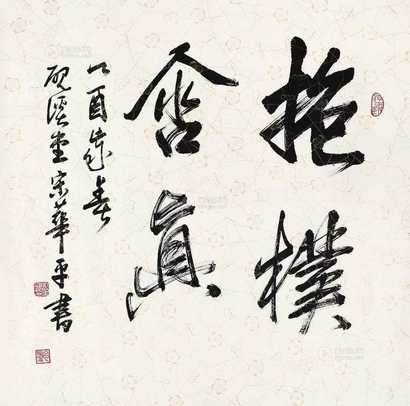 抱樸
含真
乙酉年春
硯溪堂宋華平書